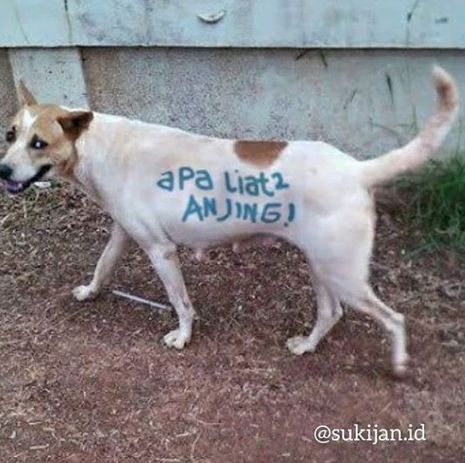 apa liat2
ANJING!
@sukijan.id